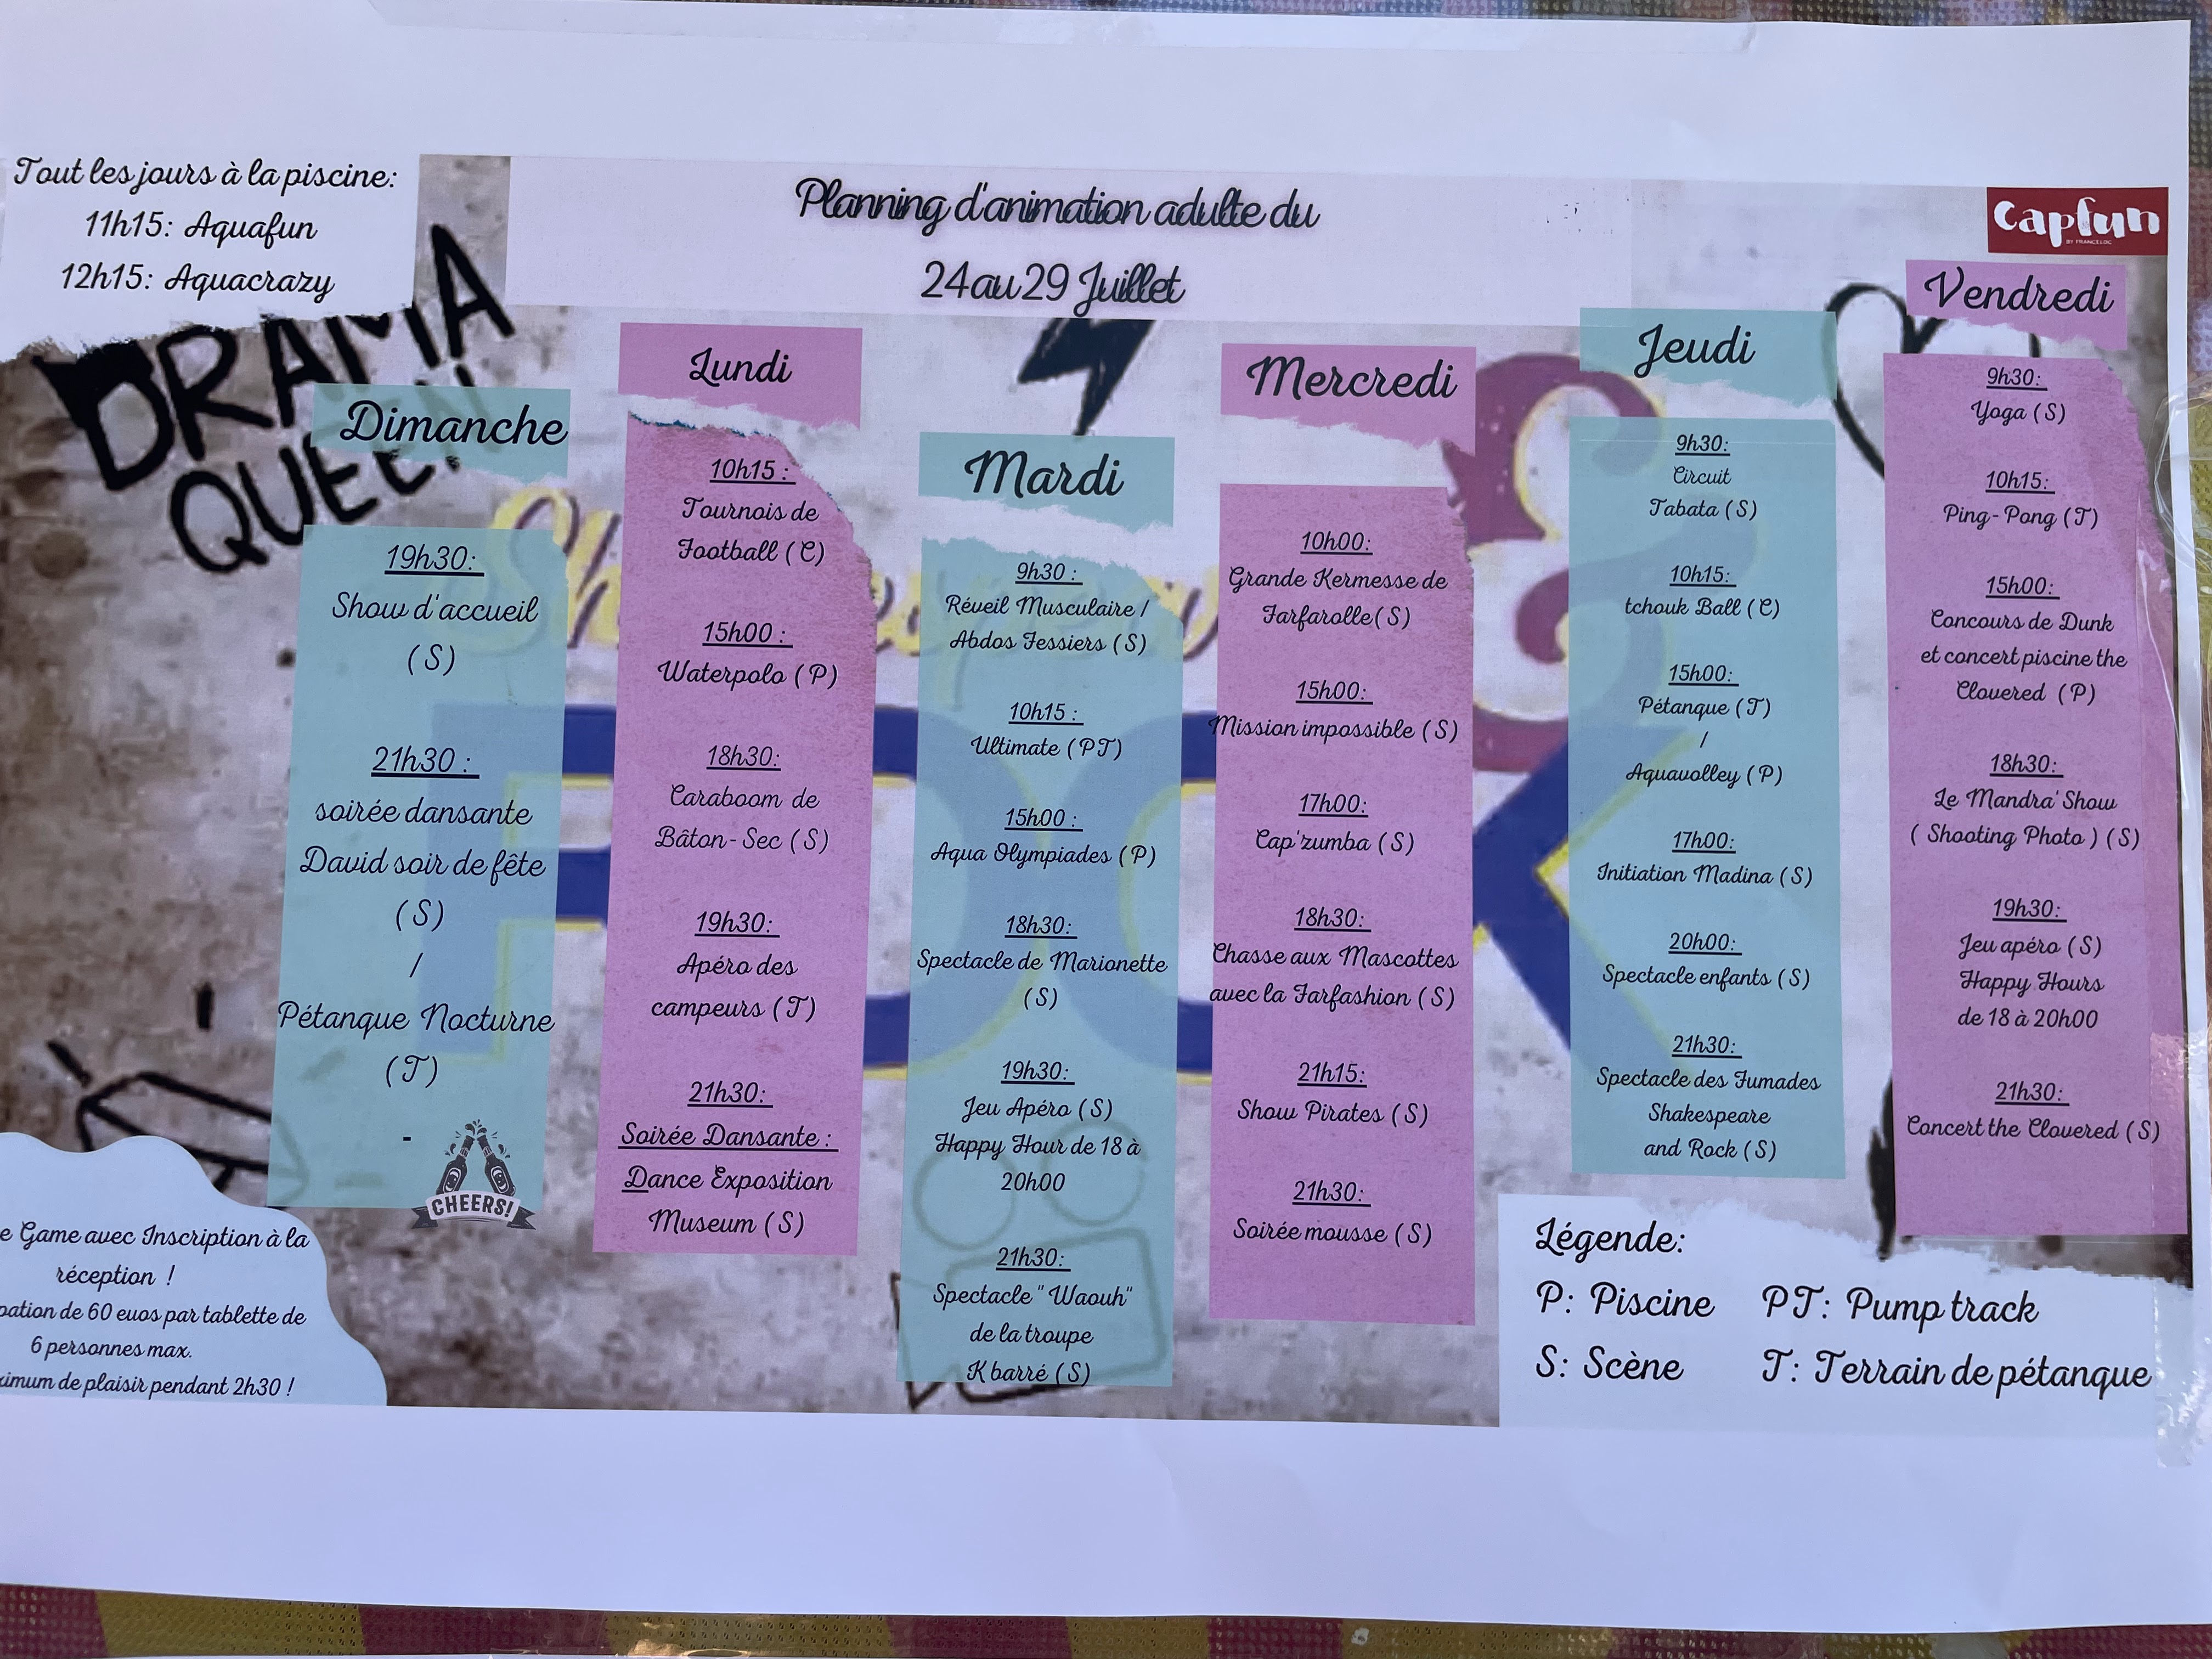 Tout les jours à la piscine:
11h15: Aquafun
12h15: Aquacrazy
Planning d'animation adulte du
24 au 29 Juillet
capfun
BY FRANCELOC
DRAMA
QUEEN
Dimanche
19h30:
Show d'accueil
(S)
21h30 :
soirée dansante
David soir de fête
(S)
/
Pétanque Nocturne
(T)
-
CHEERS!
Lundi
10h15 :
Tournois de
Football (C)
15h00 :
Waterpolo (P)
18h30:
Caraboom de
Bâton-Sec (S)
19h30:
Apéro des
campeurs (T)
21h30:
Soirée Dansante :
Dance Exposition
Museum (S)
Mardi
9h30 :
Réveil Musculaire /
Abdos Fessiers (S)
10h15 :
Ultimate (PT)
15h00 :
Aqua Olympiades (P)
18h30:
Spectacle de Marionette
(S)
19h30:
Jeu Apéro (S)
Happy Hour de 18 à
20h00
21h30:
Spectacle " Waouh"
de la troupe
K barré (S)
Mercredi
10h00:
Grande Kermesse de
Farfarolle(S)
15h00:
Mission impossible (S)
17h00:
Cap'zumba (S)
18h30:
Chasse aux Mascottes
avec la Farfashion (S)
21h15:
Show Pirates (S)
21h30:
Soirée mousse (S)
Jeudi
9h30:
Circuit
Tabata (S)
10h15:
tchouk Ball (C)
15h00:
Pétanque (T)
/
Aquavolley (P)
17h00:
Initiation Madina (S)
20h00:
Spectacle enfants (S)
21h30:
Spectacle des Fumades
Shakespeare
and Rock (S)
Vendredi
9h30:
Yoga (S)
10h15:
Ping-Pong (T)
15h00:
Concours de Dunk
et concert piscine the
Clovered (P)
18h30:
Le Mandra'Show
( Shooting Photo ) (S)
19h30:
Jeu apéro (S)
Happy Hours
de 18 à 20h00
21h30:
Concert the Clovered (S)
e Game avec Inscription à la
réception !
pation de 60 euos par tablette de
6 personnes max.
ximum de plaisir pendant 2h30 !
Légende:
P: Piscine PT: Pump track
S: Scène T: Terrain de pétanque